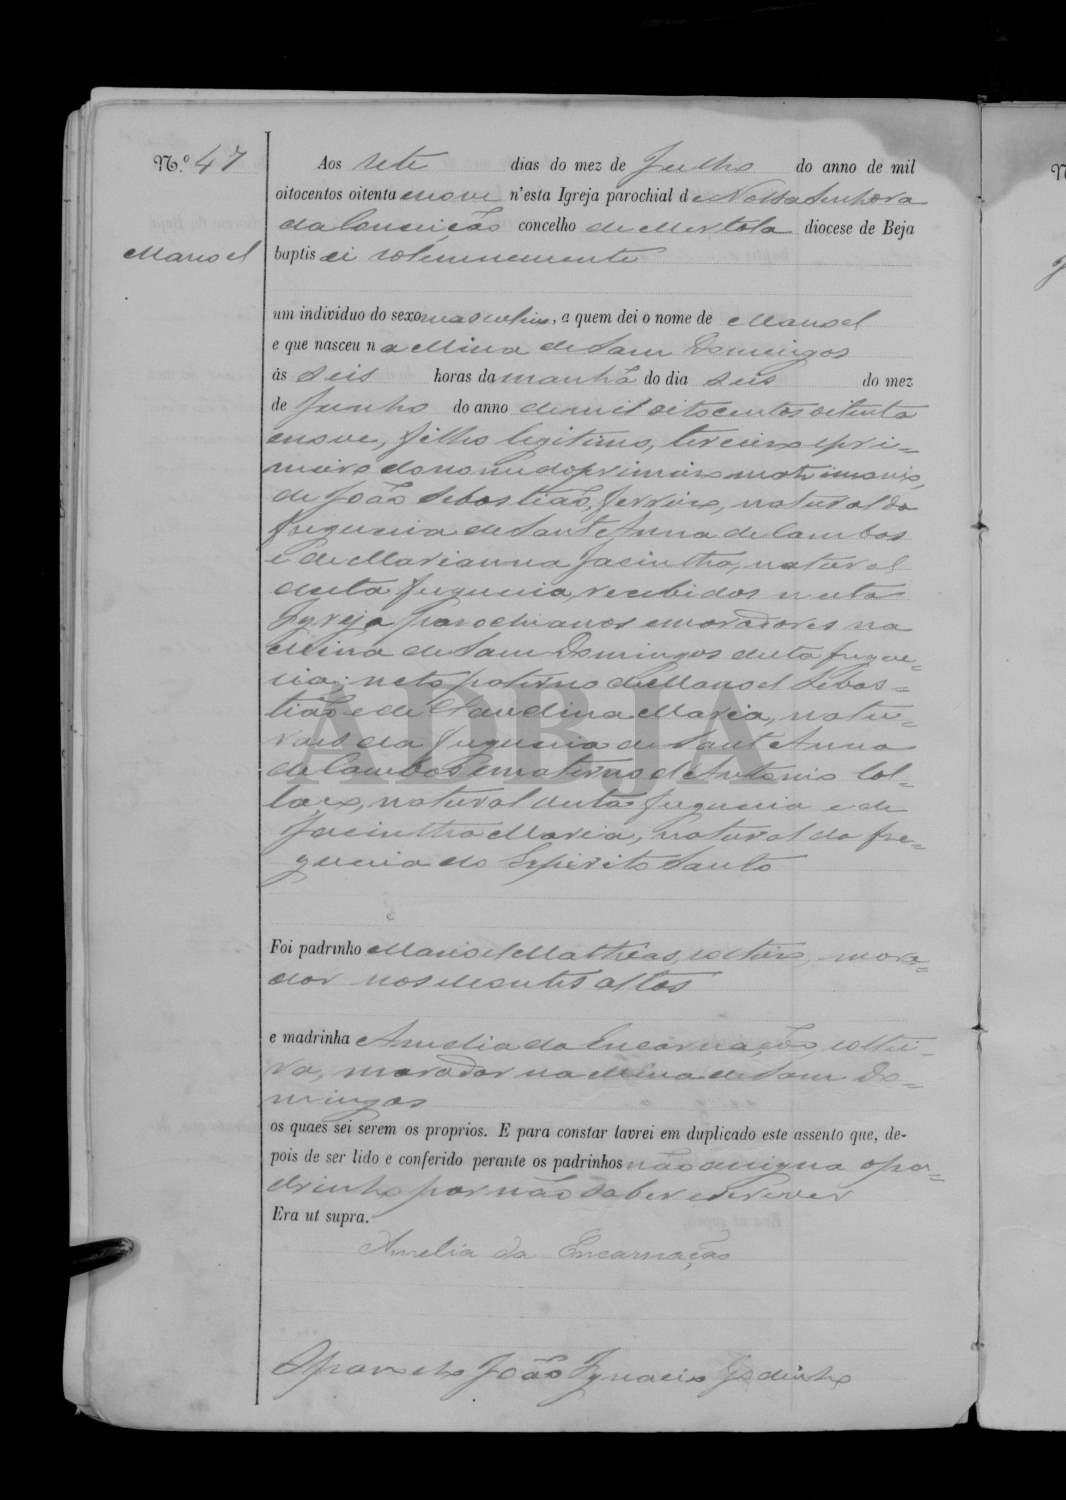 N.º 47
Aos sete dias do mez de Julho do anno de mil
oitocentos oitenta enove n'esta Igreja parochial de Nossa Senhora
da Conceição concelho de Mertola diocese de Beja
Manoel
baptisei solemnemente
um individuo do sexo masculino, a quem dei o nome de Manoel
e que nasceu na Mina de Sam Domingos
ás seis horas da manhã do dia seis do mez
de Junho do anno de mil oitocentos oitenta
enove, filho legitimo, terceiro e pri-
meiro do nome do primeiro matrimonio,
de João Sebastião, ferreiro, natural da
freguesia de Sant'Anna de Cambas
e de Marianna Jacintha, natural
desta freguesia, recebidos nesta
Igreja parochianos e moradores na
Mina de Sam Domingos desta fregue-
sia; neto paterno de Manoel Sebas-
tião e de Claudina Maria, natu-
raes da freguesia de Sant'Anna
de Cambas e materno de Antonio Col-
laço, natural desta freguesia e de
Jacintha Maria, natural da fre-
guesia do Espirito Santo
Foi padrinho Manoel Mathias, solteiro, mora-
dor nos Montes Altos
e madrinha Amelia da Encarnação, soltei-
ra, morador na Mina de Sam Do-
mingos
os quaes sei serem os proprios. E para constar lavrei em duplicado este assento que, de-
pois de ser lido e conferido perante os padrinhos não assigna o pa-
drinho por não saber escrever
Era ut supra.
Amelia da Encarnação
O parocho João Ignacio Godinho
ADBJA